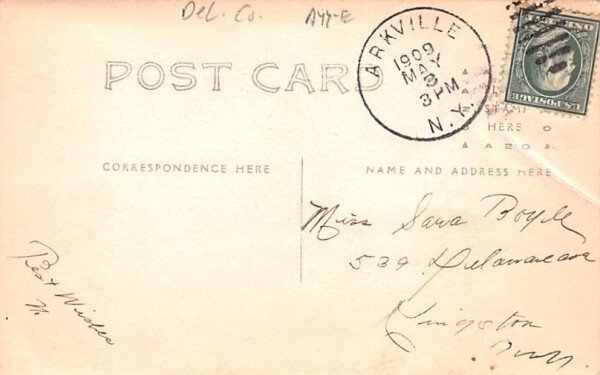 Del. Co.
POST CARD
ARKVILLE
1909
MAY
3 PM
N.Y.
U.S. POSTAGE
STAMP
HERE
CORRESPONDENCE HERE
NAME AND ADDRESS HERE
Miss Sara Boyle
539 Delaware Ave
Kingston
Best Wishes
N.